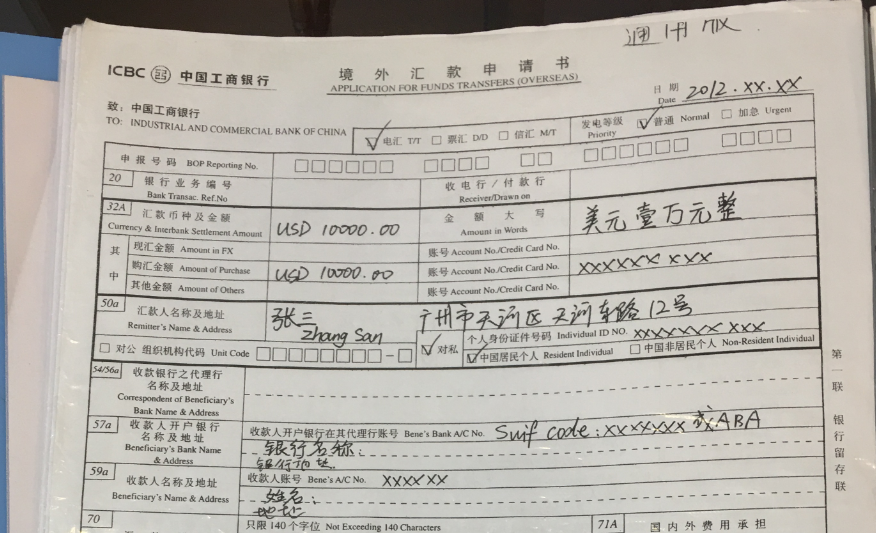 通用版
ICBC 中国工商银行
境外汇款申请书
APPLICATION FOR FUNDS TRANSFERS (OVERSEAS)
日期 Date 2012.XX.XX
致：中国工商银行
TO: INDUSTRIAL AND COMMERCIAL BANK OF CHINA
☑ 电汇 T/T □ 票汇 D/D □ 信汇 M/T
发电等级 Priority ☑ 普通 Normal □ 加急 Urgent
申报号码 BOP Reporting No. □□□□□□ □□□□ □□ □□□□□□ □□□□
20 银行业务编号 Bank Transac. Ref.No
收电行/付款行 Receiver/Drawn on
32A 汇款币种及金额 Currency & Interbank Settlement Amount USD 10000.00
金额大写 Amount in Words 美元壹万元整
其中
现汇金额 Amount in FX
账号 Account No./Credit Card No.
购汇金额 Amount of Purchase USD 10000.00
账号 Account No./Credit Card No. XXXXXX XXX
其他金额 Amount of Others
账号 Account No./Credit Card No.
50a 汇款人名称及地址 Remitter's Name & Address
张三 Zhang San 广州市天河区天河东路12号
□ 对公 组织机构代码 Unit Code □□□□□□□□-□
☑ 对私
个人身份证件号码 Individual ID NO. XXXXXXX XXX
☑ 中国居民个人 Resident Individual □ 中国非居民个人 Non-Resident Individual
54/56a 收款银行之代理行名称及地址 Correspondent of Beneficiary's Bank Name & Address
57a 收款人开户银行名称及地址 Beneficiary's Bank Name & Address
收款人开户银行在其代理行账号 Bene's Bank A/C No. Swif code: XXXXXXX 或 ABA
银行名称：
银行地址
59a 收款人名称及地址 Beneficiary's Name & Address
收款人账号 Bene's A/C No. XXXXXX
姓名：
地址
70
只限140个字位 Not Exceeding 140 Characters
71A 国内外费用承担
第一联 银行留存联